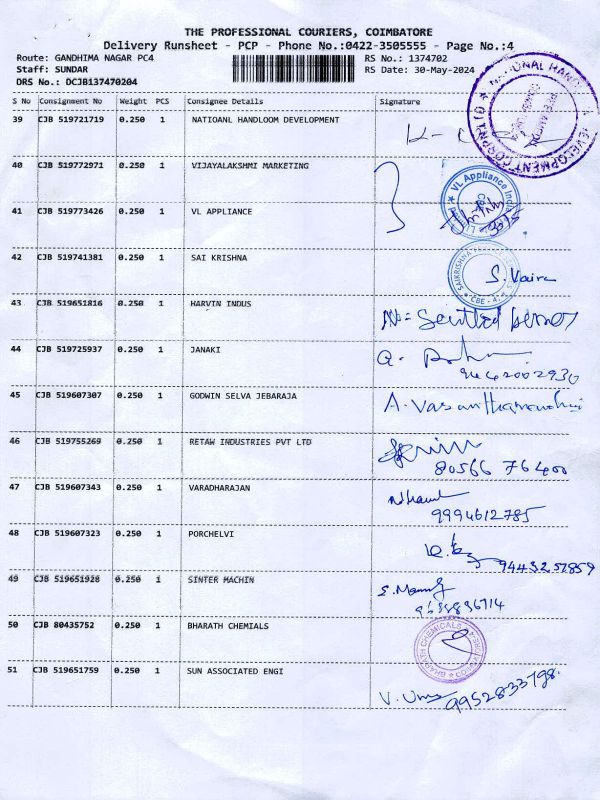 THE PROFESSIONAL COURIERS, COIMBATORE
Delivery Runsheet - PCP - Phone No.:0422-3505555 - Page No.:4
Route: GANDHIMA NAGAR PC4 RS No.: 1374702
Staff: SUNDAR RS Date: 30-May-2024
DRS No.: DCJB137470204
S No Consignment No Weight PCS Consignee Details Signature
39 CJB 519721719 0.250 1 NATIOANL HANDLOOM DEVELOPMENT
40 CJB 519772971 0.250 1 VIJAYALAKSHMI MARKETING
41 CJB 519773426 0.250 1 VL APPLIANCE
VL Appliance India
42 CJB 519741381 0.250 1 SAI KRISHNA
S. Vaira
43 CJB 519651816 0.250 1 HARVIN INDUS
44 CJB 519725937 0.250 1 JANAKI
9442002930
45 CJB 519607307 0.250 1 GODWIN SELVA JEBARAJA
46 CJB 519755269 0.250 1 RETAW INDUSTRIES PVT LTD
80566 76400
47 CJB 519607343 0.250 1 VARADHARAJAN
9994612785
48 CJB 519607323 0.250 1 PORCHELVI
9443257859
49 CJB 519651928 0.250 1 SINTER MACHIN
50 CJB 80435752 0.250 1 BHARATH CHEMIALS
BHARATH CHEMICALS
51 CJB 519651759 0.250 1 SUN ASSOCIATED ENGI
V. Uma 9952833798